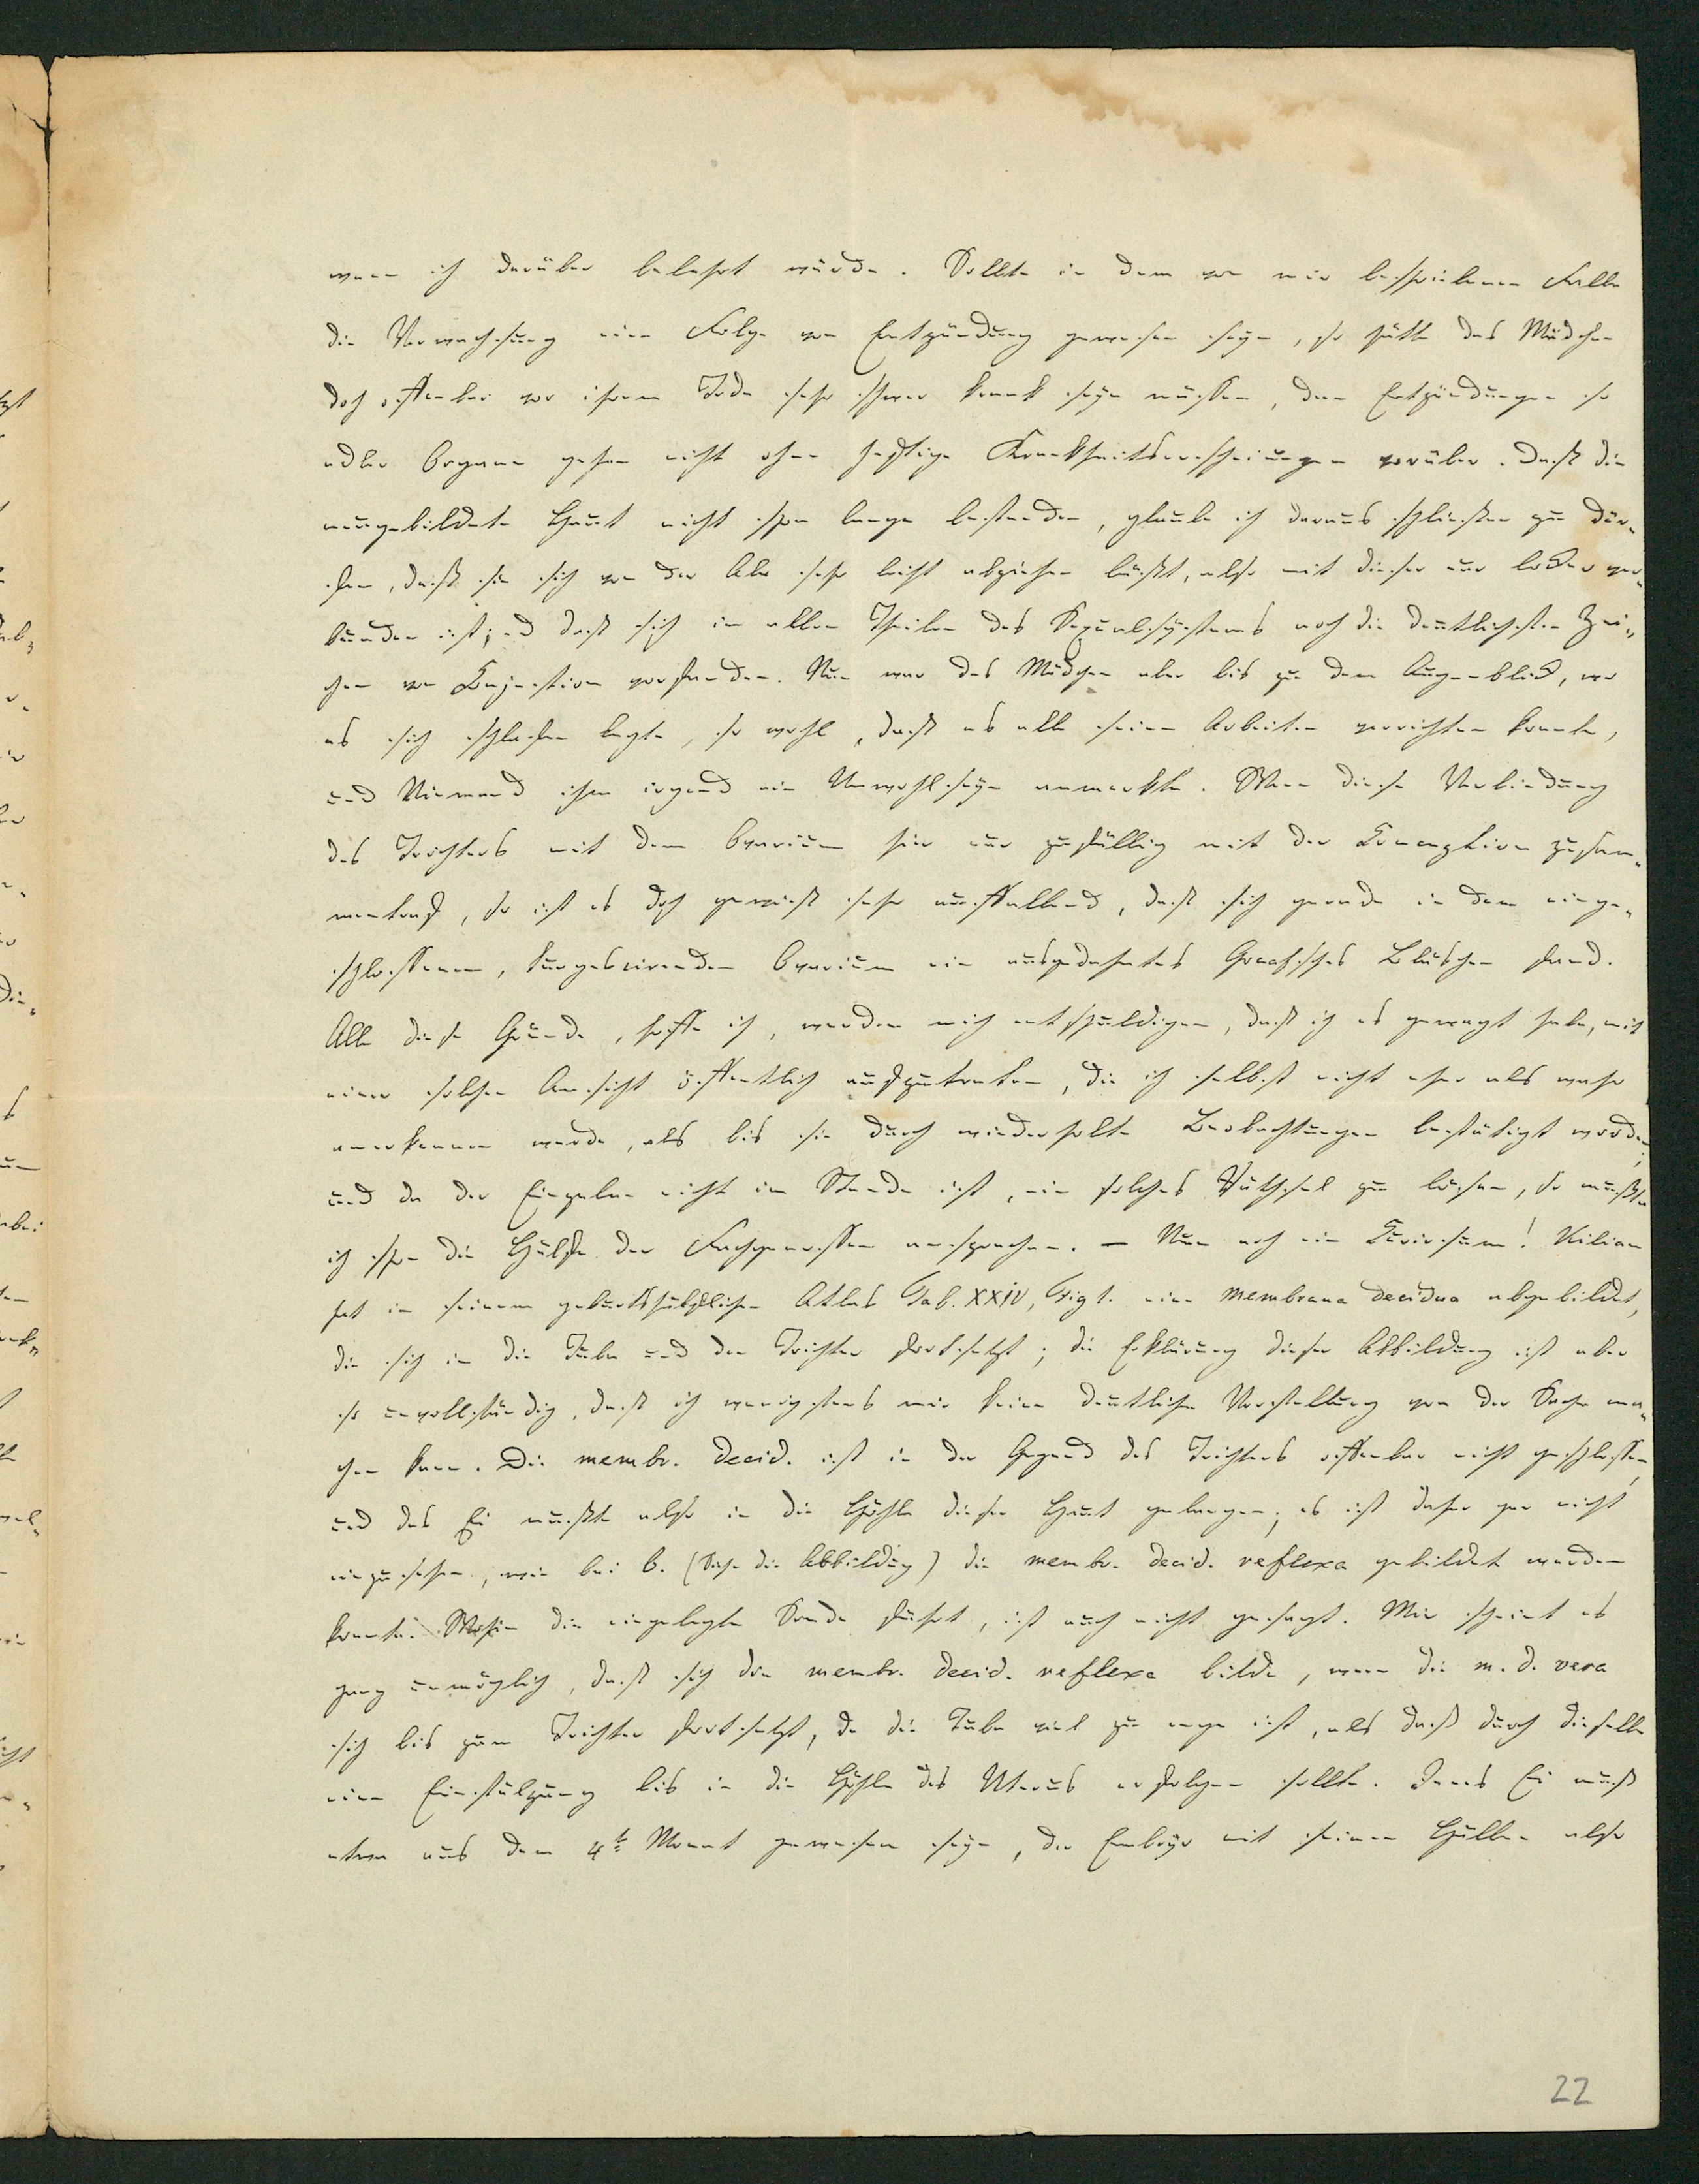 wenn ich darüber belehrt würde. Sollte in dem von mir beschriebenen Falle
die Verwachsung eine Folge von Entzündung gewesen seyn, so hätte das Mädchen
doch offenbar vor ihrem Tode sehr schwer krank seyn müssen, denn Entzündungen so
edler Organe gehen nicht ohne heftige Krankheitserscheinungen vorüber. Daß die
neugebildete Haut nicht schon lange bestanden, glaube ich daraus schließen zu dür-
fen, daß sie sich von der Ala sehr leicht abziehen läßt, also mit dieser nur locker ver-
bunden ist; und daß sich in allen Theilen des Sexualsystems noch die deutlichsten Zei-
chen von Congestion vorfanden. Nun war das Mädchen aber bis zu dem Augenblick, wo
es sich schlafen legte, so wohl, daß es alle seine Arbeiten verrichten konnte,
und Niemand ihm irgend ein Unwohlseyn anmerkte. Wenn diese Verbindung
des Trichters mit dem Ovarium hier nur zufällig mit der Conception zusam-
mentraf, so ist es doch gewiß sehr auffallend, daß sich gerade in dem einge-
schlossenen, turgescirenden Ovarium ein ausgedehntes Graafsches Bläschen fand.
Alle diese Gründe, hoffe ich, werden mich entschuldigen, daß ich es gewagt habe, mit
einer solchen Ansicht öffentlich aufzutreten, die ich selbst nicht eher als wahr
anerkennen werde, als bis sie durch wiederholte Beobachtungen bestätigt worden;
und da der Einzelne nicht im Stande ist, ein solches Räthsel zu lösen, so mußte
ich schon die Hülfe der Fachgenossen ansprechen. – Nun noch ein Curiosum! Kilian
hat in seinem geburtshülflichen Atlas Tab. XXIV, Fig 1. eine membrana decidua abgebildet,
die sich in die Tube und den Trichter fortsetzt; die Erklärung dieser Abbildung ist aber
so unvollständig, daß ich wenigstens mir keine deutliche Vorstellung von der Sache ma-
chen kann. Die membr. decid. ist in der Gegend des Trichters offenbar nicht geschlossen,
und das Ei mußte also in die Höhle dieser Haut gelangen; es ist daher gar nicht
einzusehen, wie bei b. (Siehe die Abbildung) die membr. decid. reflexa gebildet werden
konnte. Wohin die eingelegte Sonde führt, ist auch nicht gesagt. Mir scheint es
ganz unmöglich, daß sich die membr. decid. reflexa bilde, wenn die m. d. vera
sich bis zum Trichter fortsetzt, da die Tube viel zu enge ist, als daß durch dieselbe
eine Einstülpung bis in die Höhle des Uterus erfolgen sollte. Jenes Ei muß
etwa aus dem 4ten Monat gewesen seyn, der Embryo mit seinen Hüllen also
22